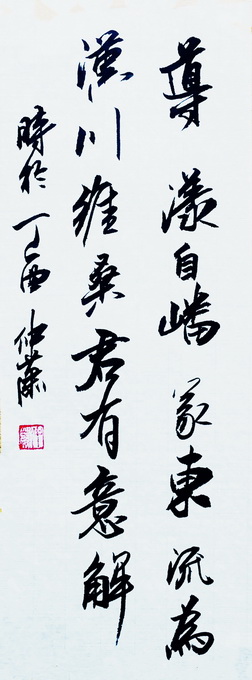 導漾自嶓冢東流為
漢川維桑君有意解
時於丁酉仲